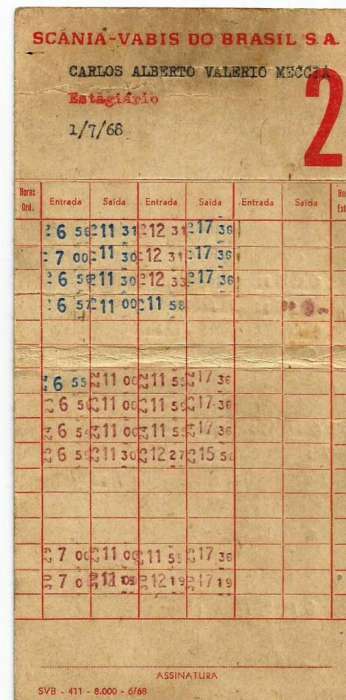 SCANIA-VABIS DO BRASIL S.A.
CARLOS ALBERTO VALERIO MECCIA
Estagiário
1/7/68
2
Horas Ord. Entrada Saída Entrada Saída Entrada Saída
6 56 11 31 12 31 17 36
7 00 11 30 12 31 17 36
6 56 11 30 12 33 17 36
6 57 11 00 11 58
6 55 11 00 11 55 17 36
6 11 00 11 17 36
6 11 00 11 17 36
6 11 30 12 27 15
7 00 11 00 11 55 17 36
7 0 12 19 17 19
ASSINATURA
SVB - 411 - 8.000 - 6/68